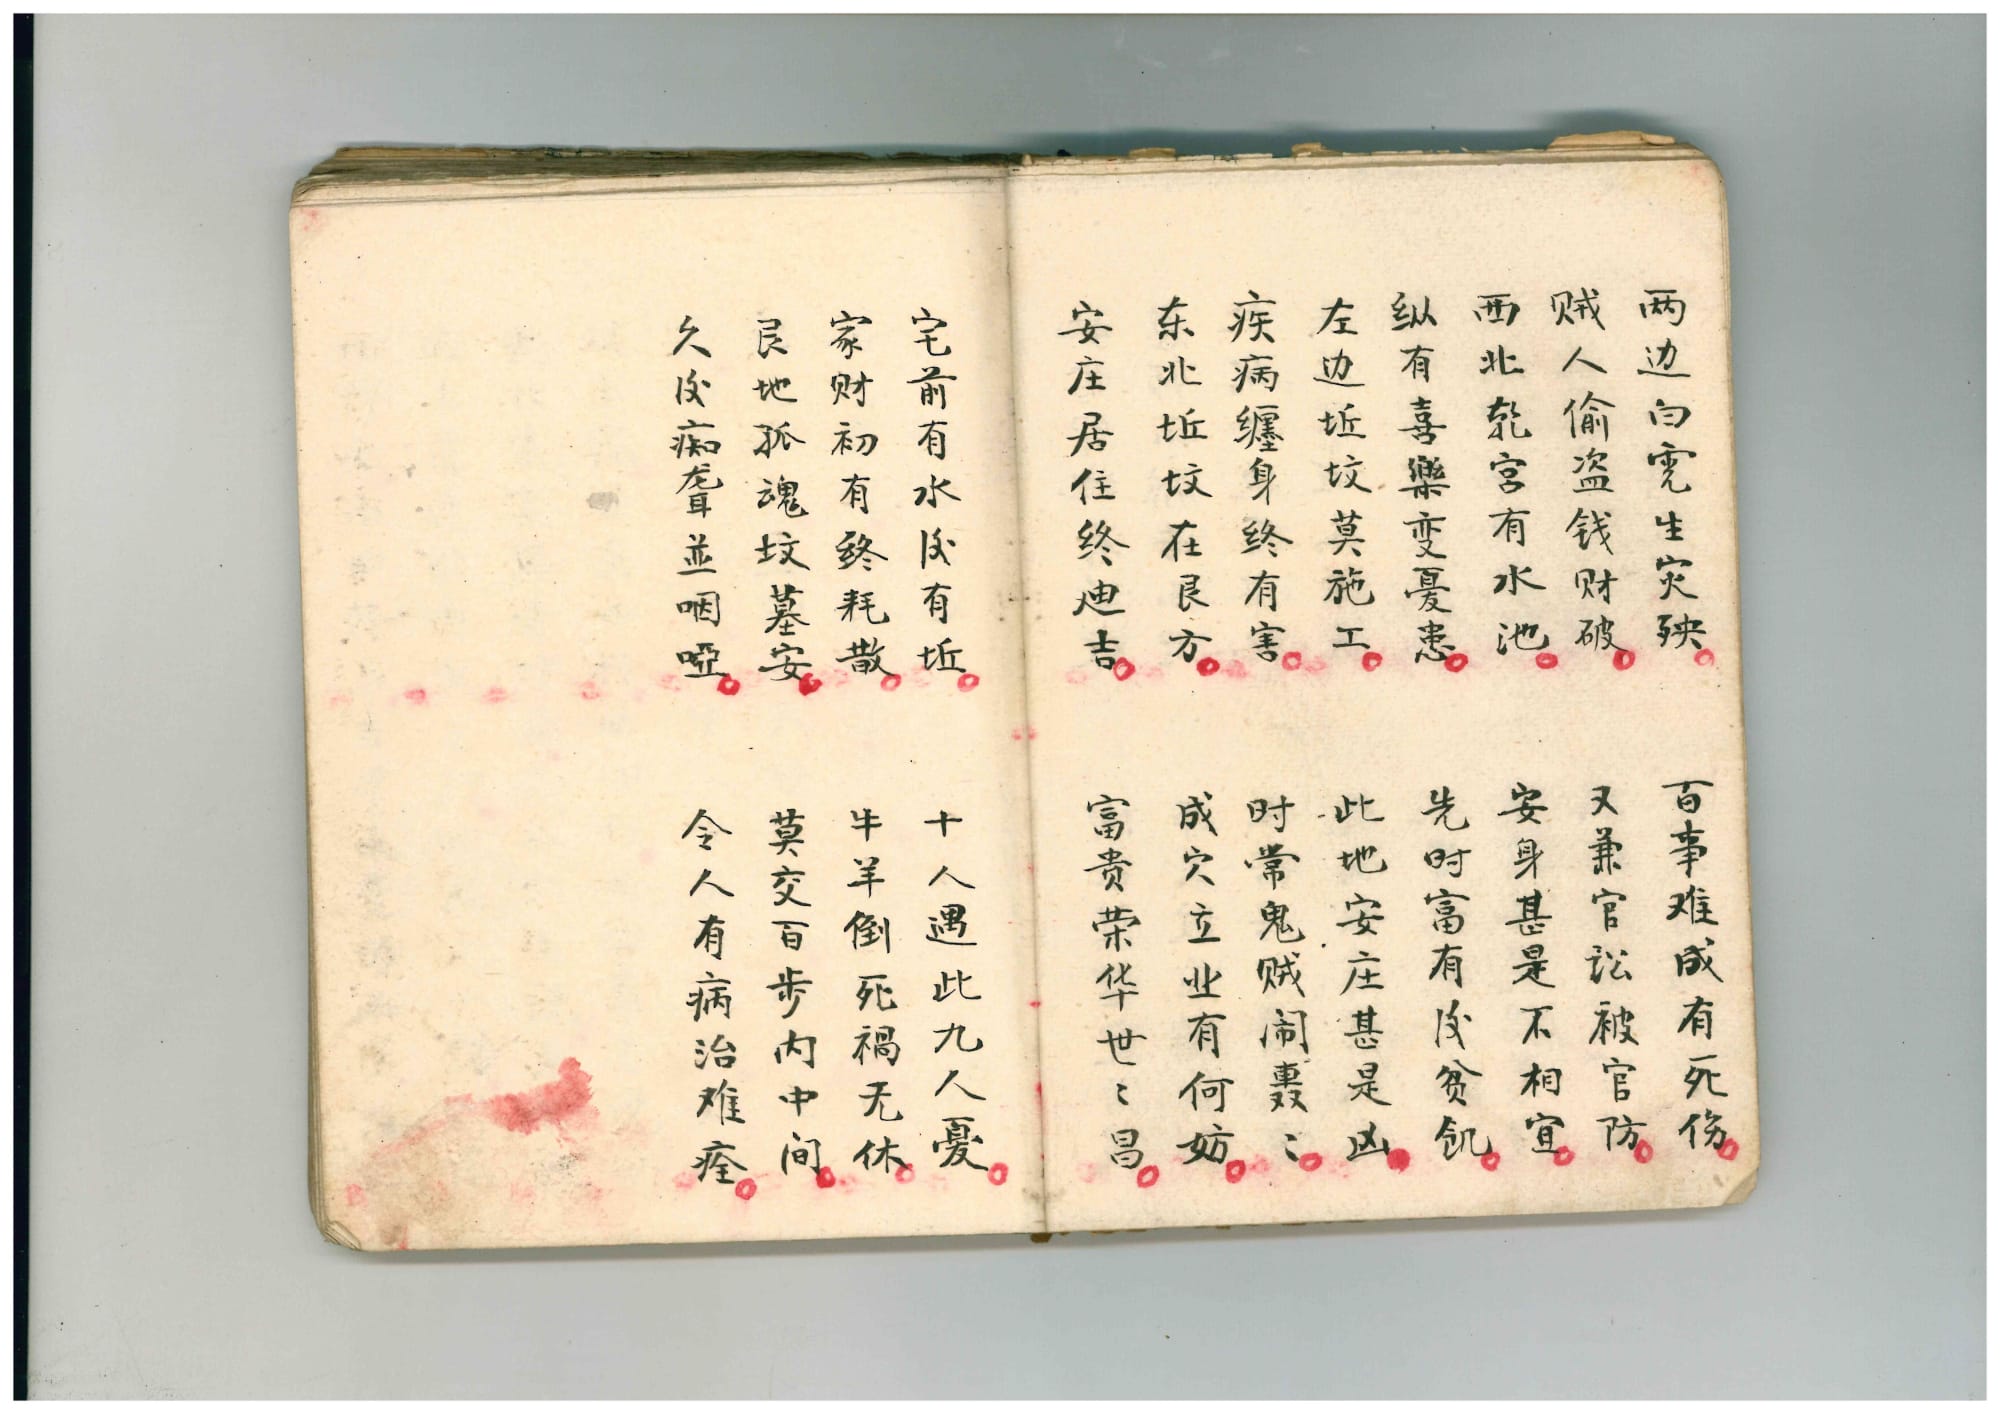 两边白虎生灾殃
百事难成有死伤
贼人偷盗钱财破
又兼官讼被官防
西北乾宫有水池
安身甚是不相宜
纵有喜樂变憂患
先时富有後贫飢
左边坵坟莫施工
此地安庄甚是凶
疾病缠身终有害
时常鬼贼闹轰〻
东北坵坟在艮方
成穴立业有何妨
安庄居住终迪吉
富贵荣华世〻昌
宅前有水後有坵
十人遇此九人憂
家财初有终耗散
牛羊倒死祸无休
艮地孤魂坟墓安
莫交百步内中间
久後痴聋並咽啞
令人有病治难痊